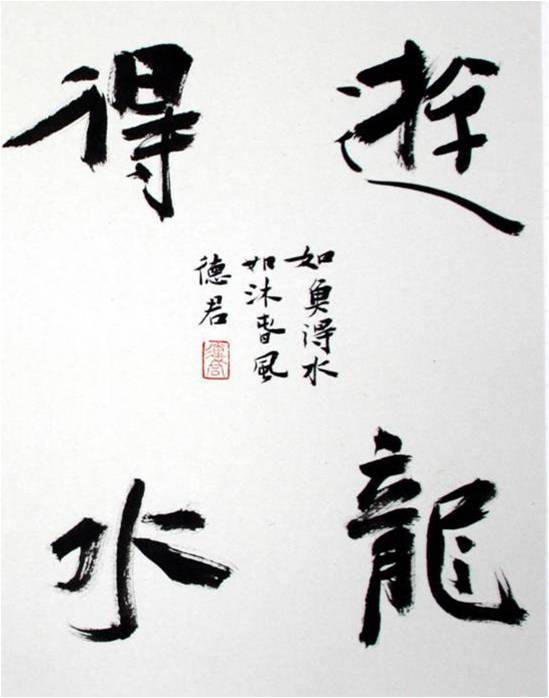 遊龍
得水
如魚得水
如沐春風
德君